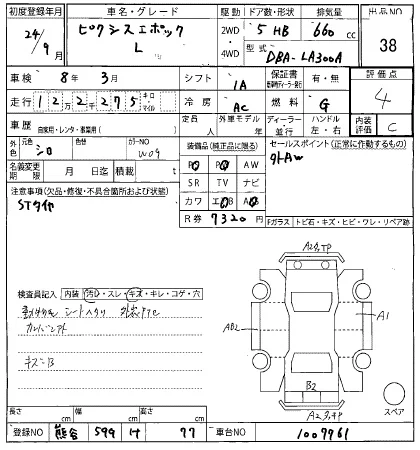 初度登録年月 車名・グレード 駆動 ドア数・形状 排気量 出品NO
24/9月 ピクシスエポック L 2WD 4WD 5 HB 660 cc 38
型式 DBA-LA300A
車検 8年 3月 シフト IA 保証書 有・無 評価点
走行 122千275 キロ・マイル 冷房 AC 燃料 G 4
車歴 自家用・レンタ・事業用( ) 定員 人 外車モデル 年 ディーラー・並行 ハンドル 左・右 内装 C
外色 元色 シロ 色替 カラーNO W09 装備品(純正品に限る) セールスポイント(正常に作動するもの)
名義変更期限 月 日迄 積載 PS PW AW 外AW
注意事項(欠品・修復・不具合箇所および状態) SR TV ナビ
STタイヤ カワ エアB AB
R券 7320 Fガラス トビ石・キズ・ヒビ・ワレ・リペア跡
検査員記入 内装 汚れ・スレ・キズ・キレ・コゲ・穴
A2,TP
AB2
A1
キズ=B
B2
A2,TP
スペア
長さ cm 幅 cm 高さ cm
登録NO 熊谷 599 け 77 車台NO 1007961